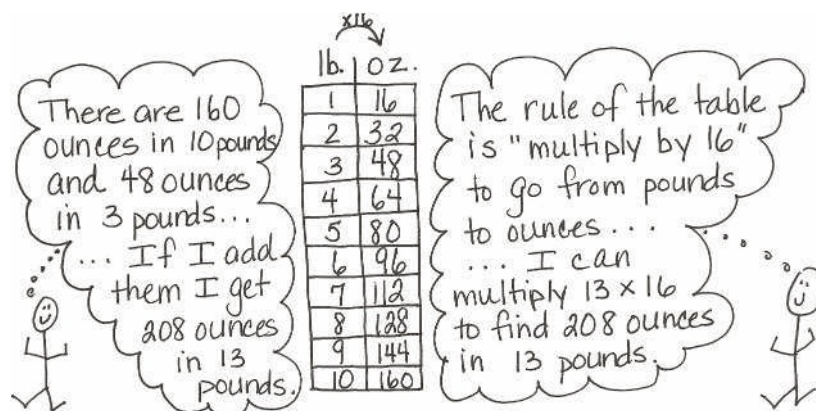 There are 160
ounces in 10 pounds
and 48 ounces
in 3 pounds...
... If I add
them I get
208 ounces
in 13
pounds.
x16
lb. oz.
1 16
2 32
3 48
4 64
5 80
6 96
7 112
8 128
9 144
10 160
The rule of the table
is "multiply by 16"
to go from pounds
to ounces...
... I can
multiply 13 x 16
to find 208 ounces
in 13 pounds.